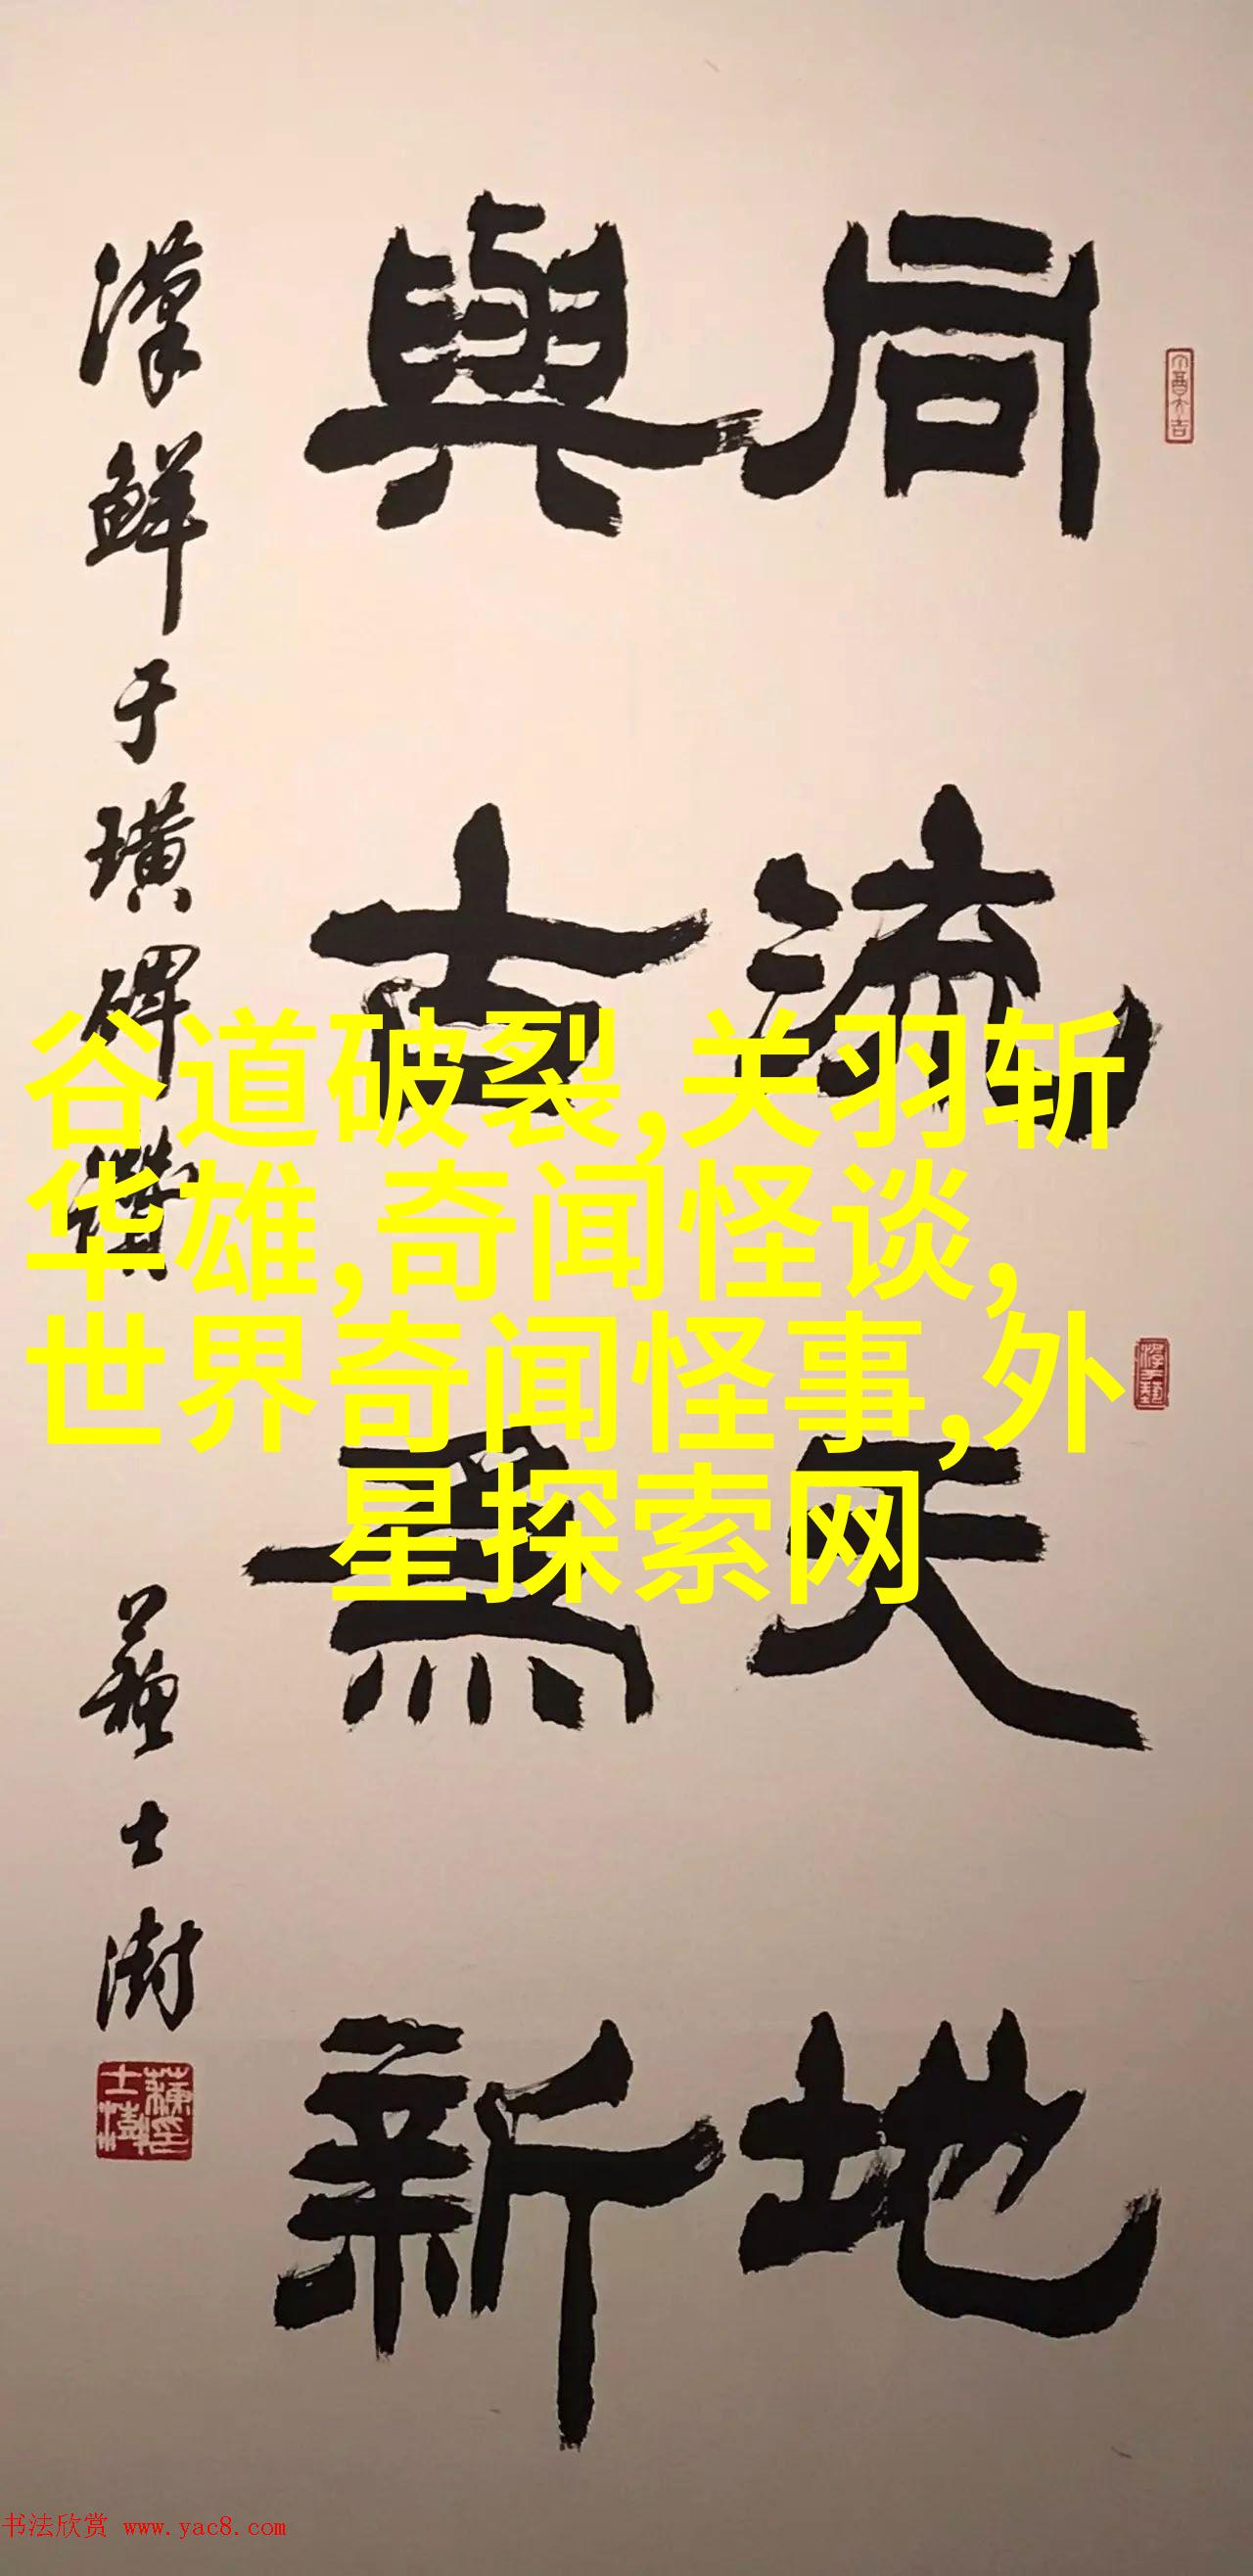 同流天地
與古為新
漢鮮于璜碑
蘇士澍
谷道破裂,关羽斩
华雄,奇闻怪谈,
世界奇闻怪事,外
星探索网
书法欣赏 www.yac8.com